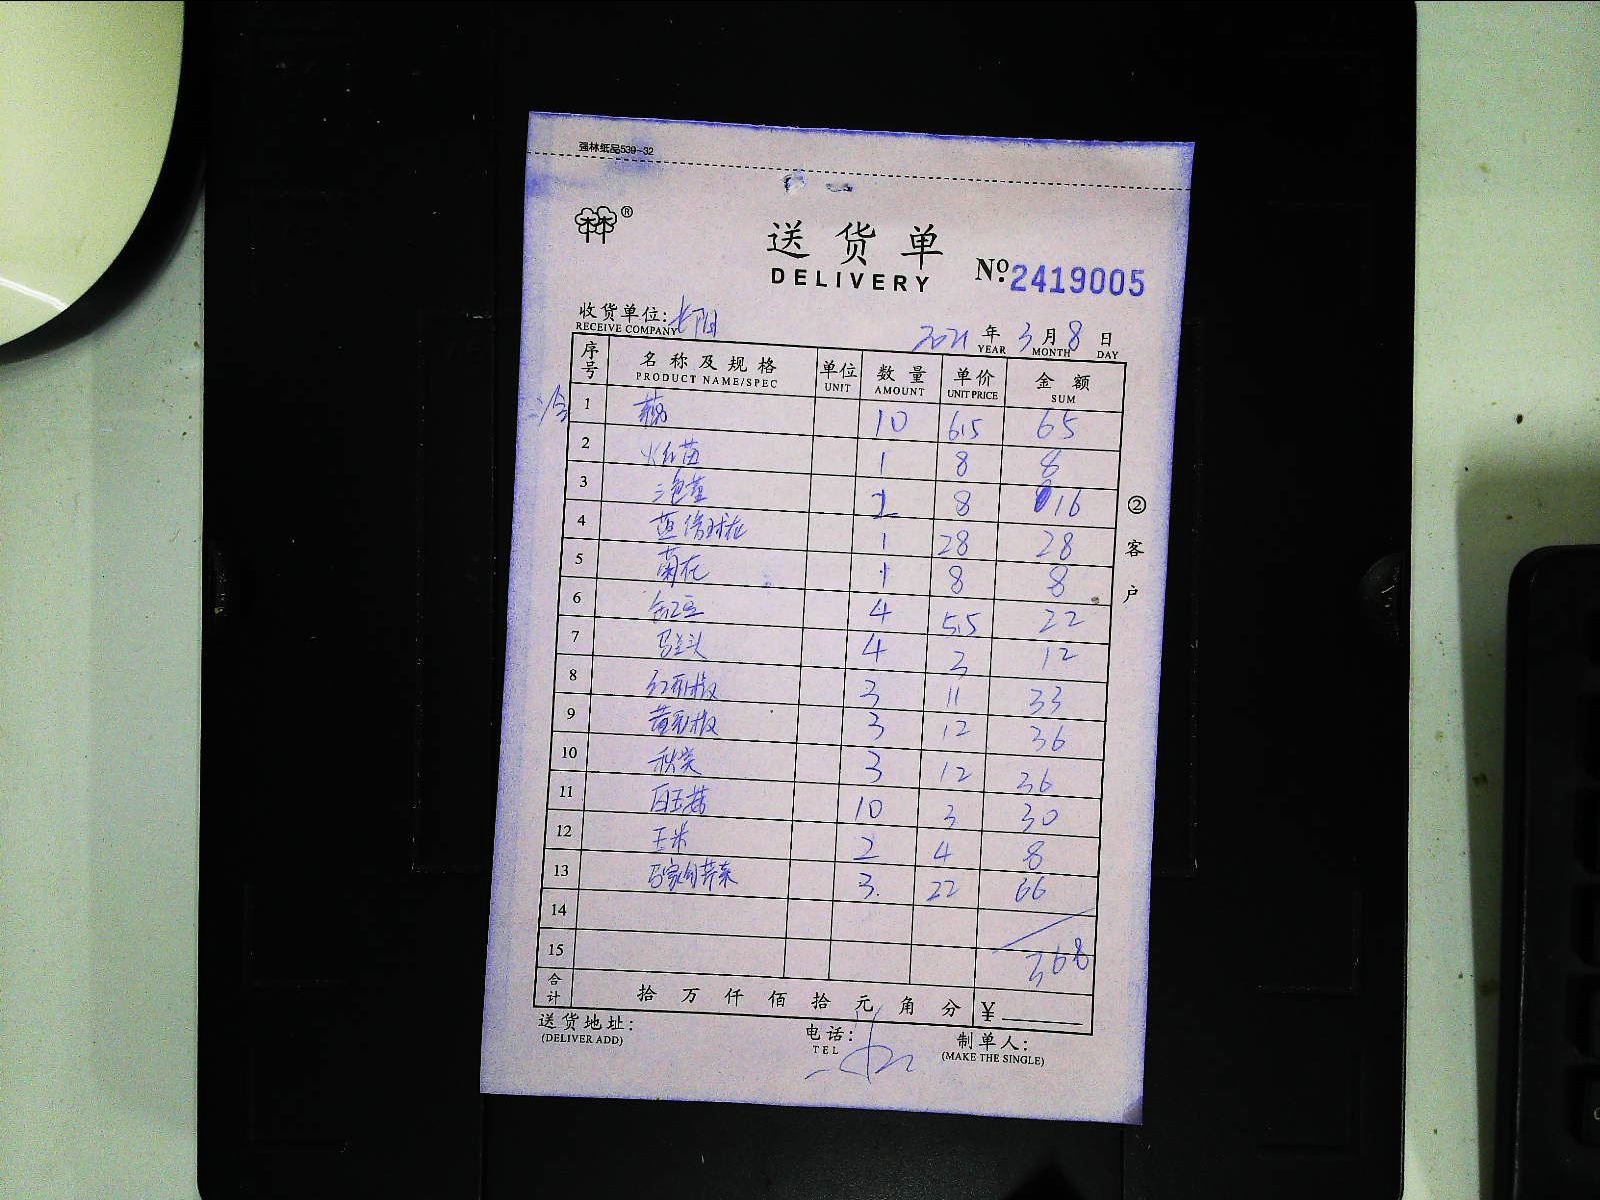 强林纸品539-32
®
送货单
DELIVERY
No.2419005
收货单位:
RECEIVE COMPANY
2021 年 3 月 8 日
YEAR MONTH DAY
序号 名称及规格 单位 数量 单价 金额
PRODUCT NAME/SPEC UNIT AMOUNT UNIT PRICE SUM
1 藕 10 6.5 65
2 1 8 8
3 2 8 16
4 1 28 28
5 菊花 1 8 8
6 豆 4 5.5 22
7 马兰头 4 3 12
8 红彩椒 3 11 33
9 黄彩椒 3 12 36
10 秋葵 3 12 36
11 白玉菇 10 3 30
12 玉米 2 4 8
13 马家沟芹菜 3 22 66
14
15 368
合计 拾 万 仟 佰 拾 元 角 分 ¥
送货地址:
(DELIVER ADD)
电话:
TEL
制单人:
(MAKE THE SINGLE)
②客户